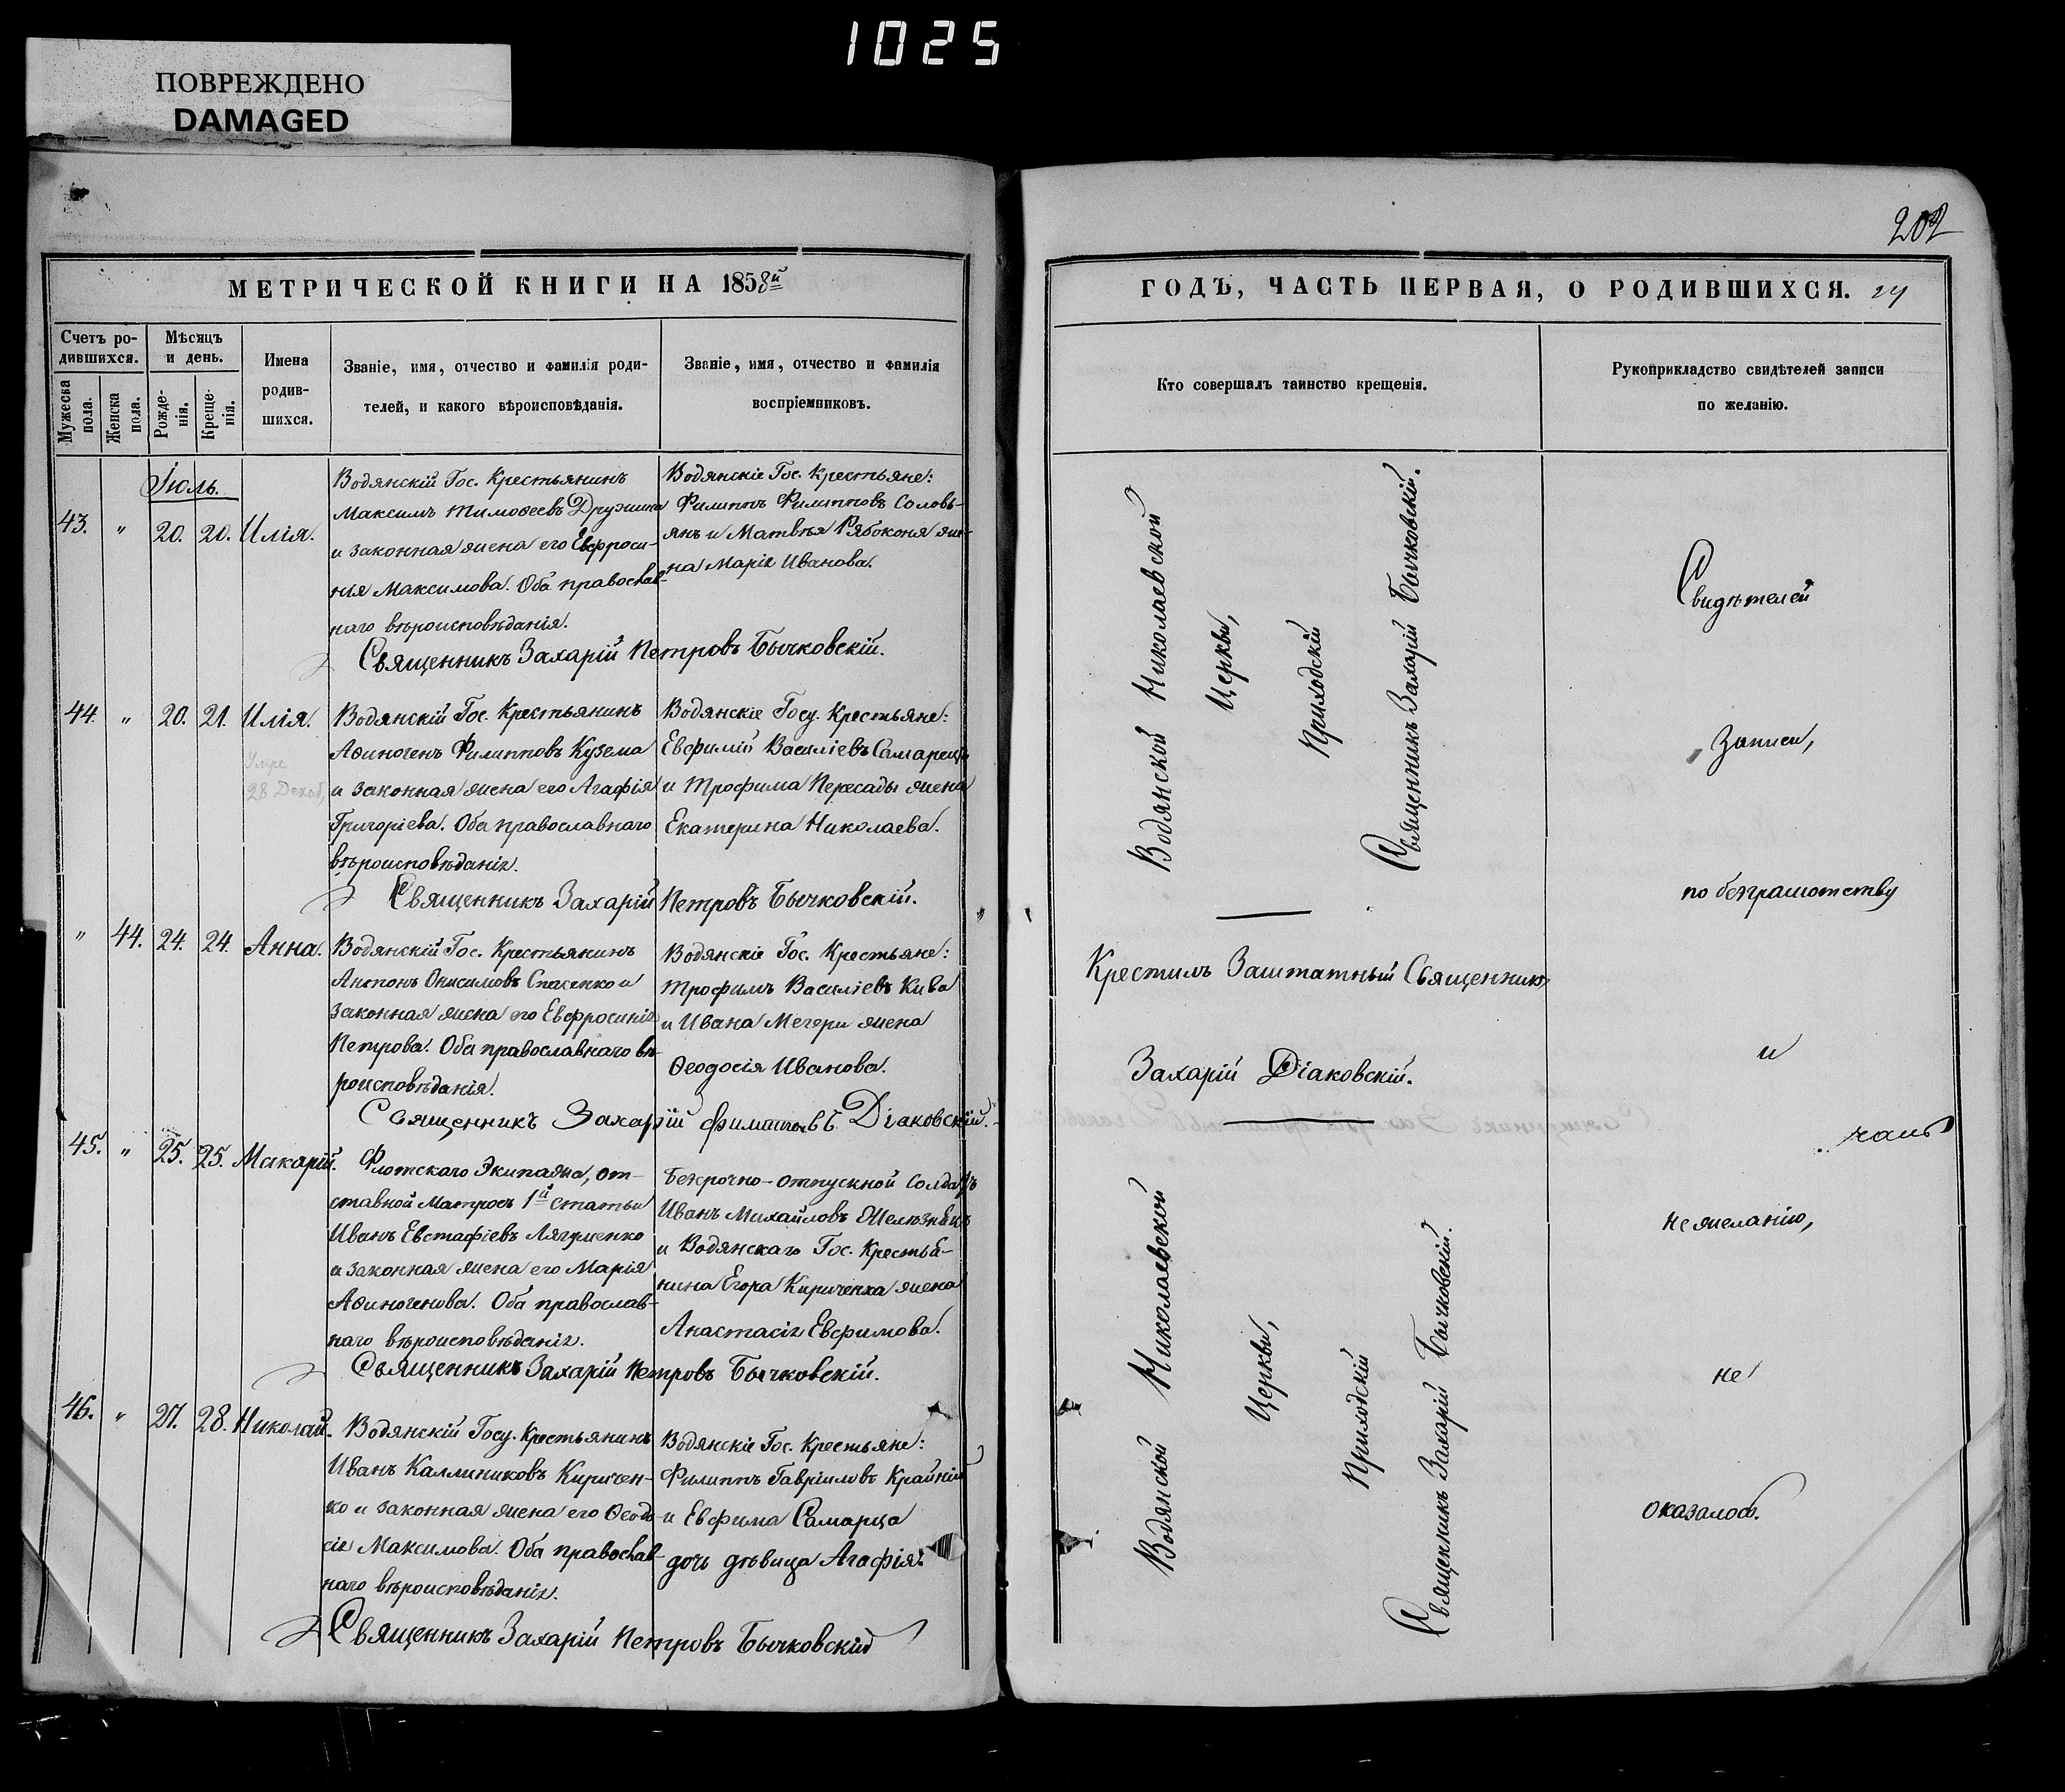 1025
ПОВРЕЖДЕНО
DAMAGED
МЕТРИЧЕСКОЙ КНИГИ НА 1858й
Счетъ ро-
дившихся.
Мужеска
пола.
Женска
пола.
Мѣсяцъ
и день.
Рожде-
нія.
Креще-
нія.
Имена
родив-
шихся.
Званіе, имя, отчество и фамилія роди-
телей, и какого вѣроисповѣданія.
Званіе, имя, отчество и фамилія
воспріемниковъ.
Іюль.
43. " 20. 20. Илія.
Водянскій Гос. Крестьянинъ
Максимъ Тимоѳеевъ Дружина
и законная жена его Евфроси-
нія Максимова. Оба православ-
наго вѣроисповѣданія.
Водянскіе Гос. Крестьяне:
Филиппъ Филипповъ Соловь-
янъ и Матвѣя Рябоконя же-
на Марія Иванова.
Священникъ Захарій Петровъ Бычковскій.
44. " 20. 21. Илія.
Умре
28 Декаб.
Водянскій Гос. Крестьянинъ
Аѳиногенъ Филипповъ Кузема
и законная жена его Агафія
Григоріева. Оба православнаго
вѣроисповѣданія.
Водянскіе Госу. Крестьяне:
Евфимій Василіевъ Самарецъ
и Трофима Пересады жена
Екатерина Николаева.
Священникъ Захарій Петровъ Бычковскій.
" 44. 24. 24. Анна.
Водянскій Гос. Крестьянинъ
Антонъ Онисимовъ Стасенко и
законная жена его Евфросинія
Петрова. Оба православнаго вѣ-
роисповѣданія.
Водянскіе Гос. Крестьяне:
Трофимъ Василіевъ Кива
и Ивана Мегери жена
Ѳеодосія Иванова.
Священникъ Захарій Діаковскій.
45. " 25. 25. Макарій.
Флотскаго Экипажа, от-
ставной Матросъ 1й статьи
Иванъ Евстафіевъ Лягуменко
и законная жена его Марія
Аѳиногенова. Оба православ-
наго вѣроисповѣданія.
Безрочно-отпускной Солдатъ
Иванъ Михайловъ Желѣзнякъ
и Водянскаго Гос. Крестья-
нина Егора Кириченка жена
Анастасія Евфимова.
Священникъ Захарій Петровъ Бычковскій.
46. " 27. 28. Николай.
Водянскій Госу. Крестьянинъ
Иванъ Каллиниковъ Киричен-
ко и законная жена его Ѳеодо-
сія Максимова. Оба православ-
наго вѣроисповѣданія.
Водянскіе Гос. Крестьяне:
Филиппъ Гавріиловъ Крайній
и Евфима Самарца
дочь дѣвица Агафія.
Священникъ Захарій Петровъ Бычковскій
202
ГОДЪ, ЧАСТЬ ПЕРВАЯ, О РОДИВШИХСЯ.
Кто совершалъ таинство крещенія.
Рукоприкладство свидѣтелей записи
по желанію.
Водянской Николаевской
Церкви,
Приходскій
Священникъ Захарій Бычковскій.
Крестилъ Заштатный Священникъ
Захарій Діаковскій.
Водянской Николаевской
Церкви,
Приходскій
Священникъ Захарій Бычковскій.
Свидѣтелей
записи,
по безграмотству
и
нежеланію,
не
оказалось.